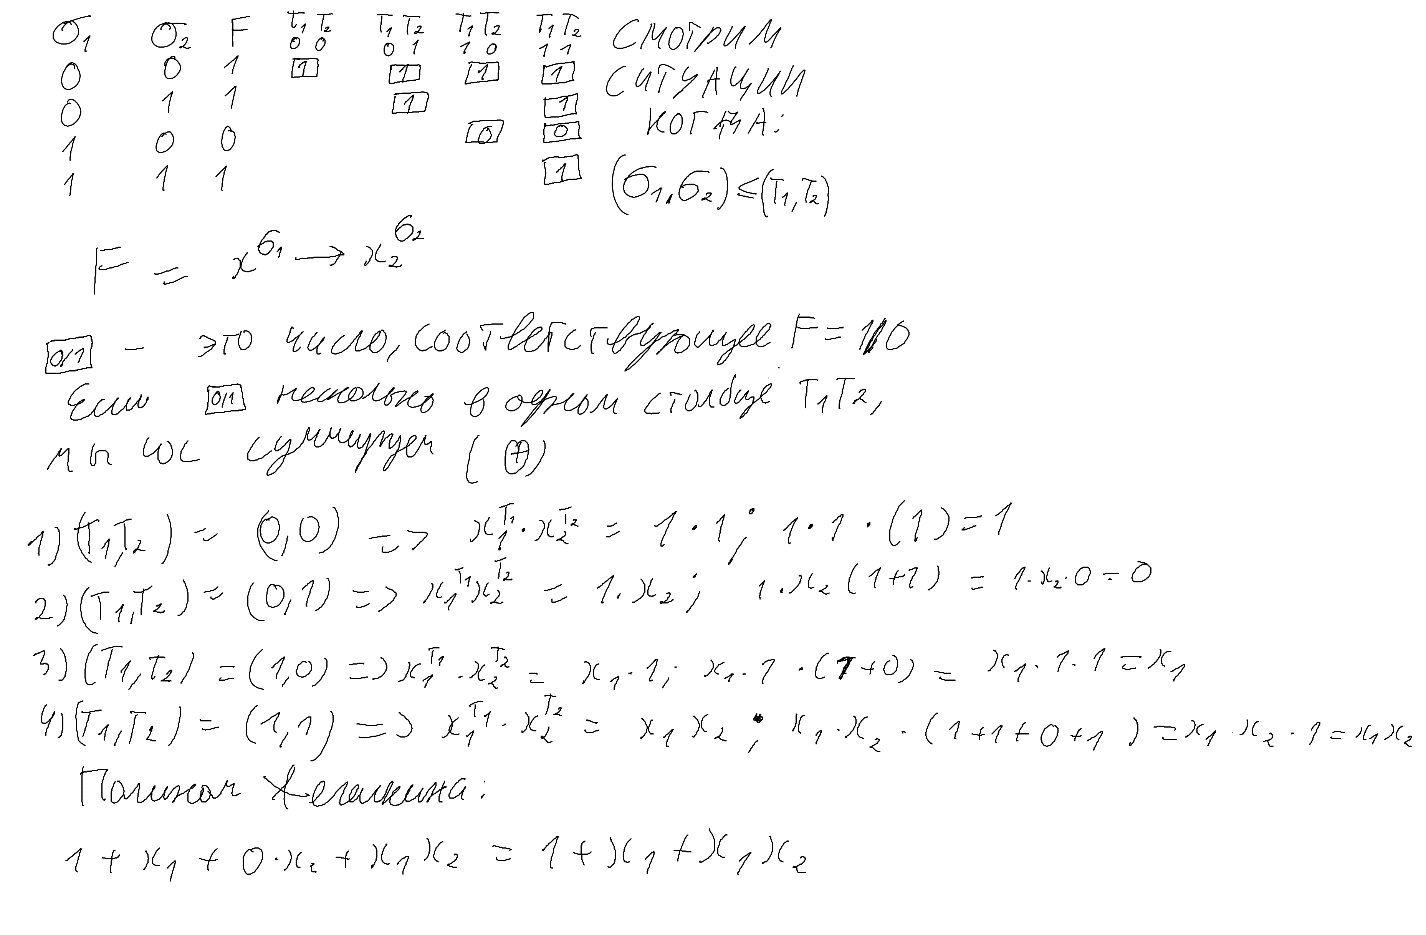 σ₁ σ₂ F T₁T₂ T₁T₂ T₁T₂ T₁T₂ СМОТРИМ
0 0 0 1 1 0 1 1
0 0 1 1 1 1 1 СИТУАЦИИ
0 1 1 1 1 КОГДА:
1 0 0 0 0
1 1 1 1 (σ₁,σ₂) ≤ (T₁,T₂)
F = x^σ₁ → x₂^σ₂
0/1 – это число, соответствующее F = 1/0
Если 0/1 несколько в одном столбце T₁T₂,
мы их суммируем (⊕)
1) (T₁,T₂) = (0,0) => x₁^T₁ · x₂^T₂ = 1 · 1 ; 1 · 1 · (1) = 1
2) (T₁,T₂) = (0,1) => x₁^T₁ x₂^T₂ = 1 · x₂ ; 1 · x₂ (1+1) = 1 · x₂ · 0 = 0
3) (T₁,T₂) = (1,0) => x₁^T₁ · x₂^T₂ = x₁ · 1 ; x₁ · 1 · (1+0) = x₁ · 1 · 1 = x₁
4) (T₁,T₂) = (1,1) => x₁^T₁ · x₂^T₂ = x₁ x₂ ; x₁ · x₂ · (1+1+0+1) = x₁ · x₂ · 1 = x₁x₂
Полином Жегалкина:
1 + x₁ + 0 · x₂ + x₁x₂ = 1 + x₁ + x₁x₂